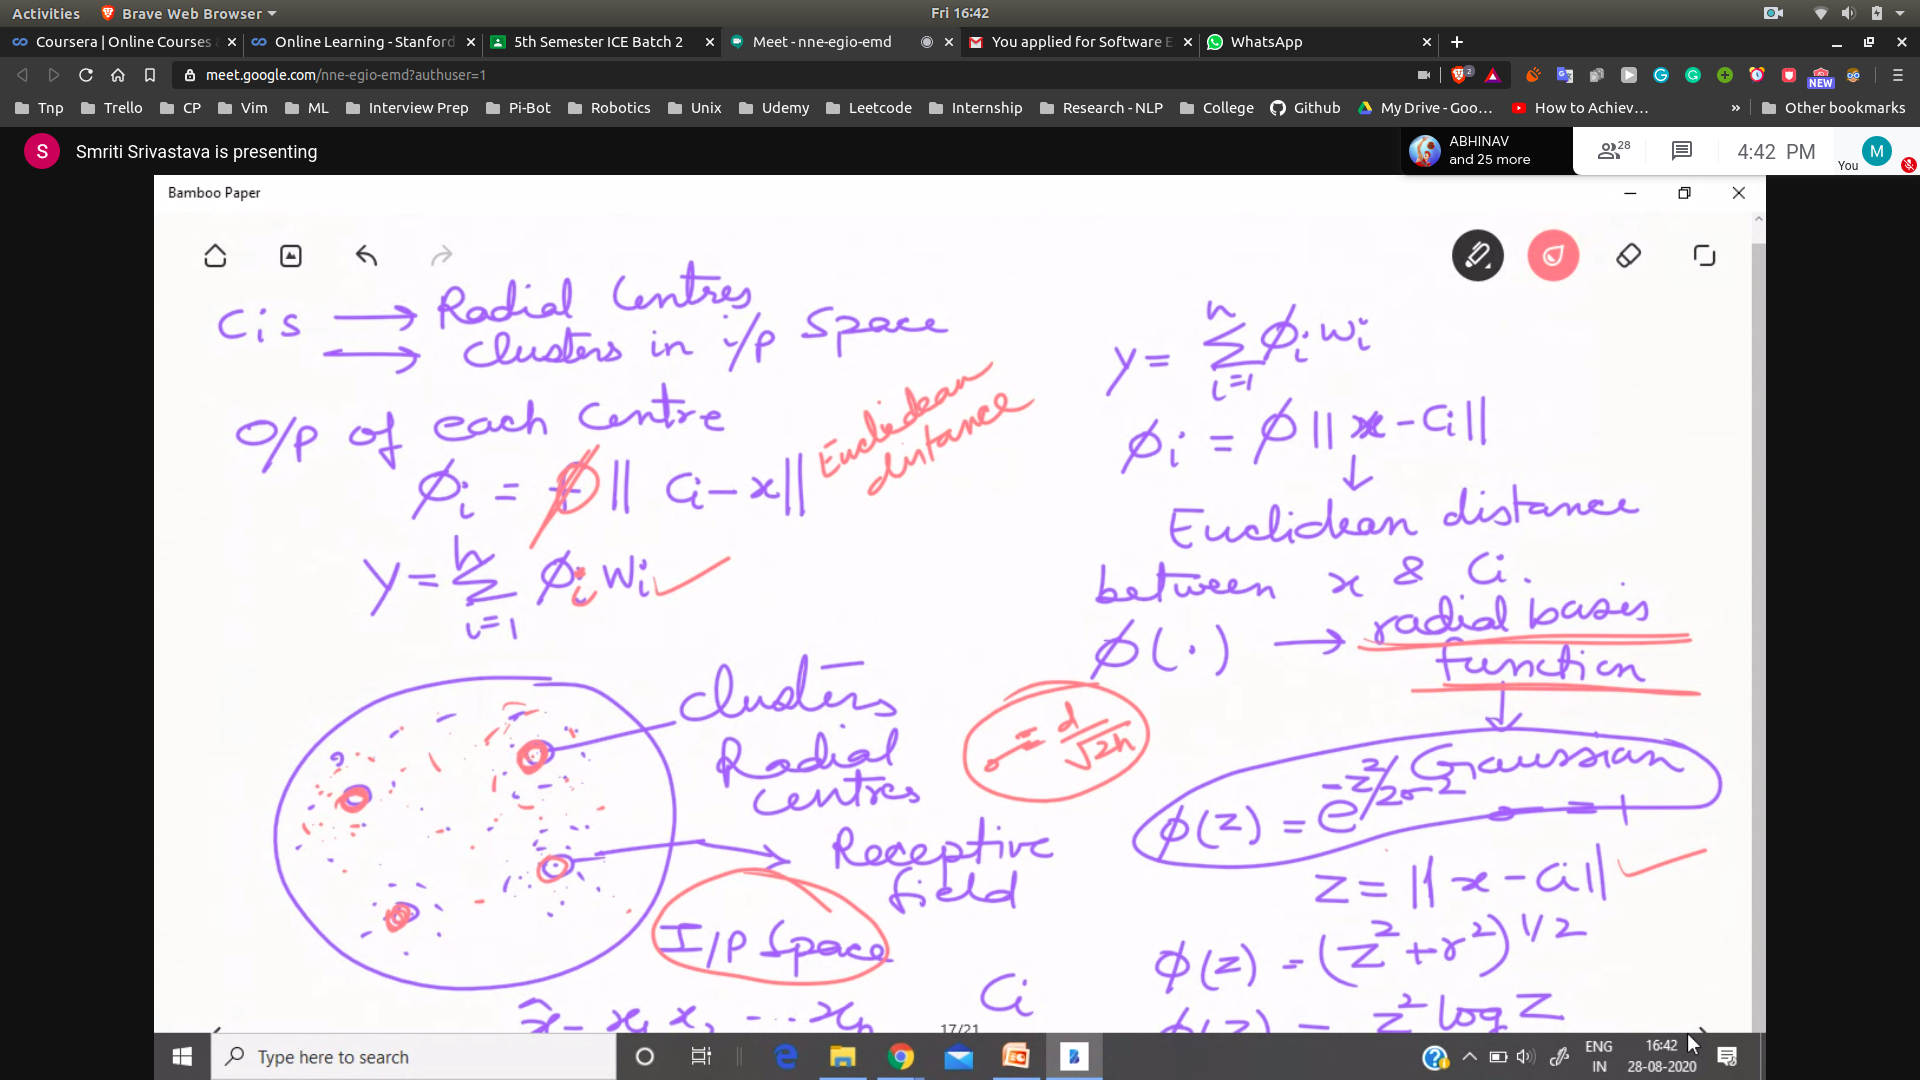 Activities Brave Web Browser Fri 16:42
Coursera | Online Courses & Online Learning - Stanford 5th Semester ICE Batch 2 Meet - nne-egio-emd You applied for Software E WhatsApp
meet.google.com/nne-egio-emd?authuser=1 2 NEW
Tnp Trello CP Vim ML Interview Prep Pi-Bot Robotics Unix Udemy Leetcode Internship Research - NLP College Github My Drive - Goo... How to Achiev... » Other bookmarks
S Smriti Srivastava is presenting
ABHINAV
and 25 more
28
4:42 PM
You M
Bamboo Paper
Cis → Radial Centres
→ Clusters in i/p Space
O/P of each Centre
Euclidean
distance
ϕi = ϕ || Ci - x ||
y = n Σ i=1 ϕi wi
Clusters
Radial
Centres
Receptive
field
I/P Space
σ = d/√2n
Ci
y = n Σ i=1 ϕi wi
ϕi = ϕ || x - Ci ||
Euclidean distance
between x & Ci.
ϕ(.) → radial basis
function
Gaussian
ϕ(z) = e^-z²/2σ² σ = 1
z = || x - Ci ||
ϕ(z) = (z² + r²)^1/2
ϕ(z) = z² log z
17/21
Type here to search
ENG
IN
16:42
28-08-2020